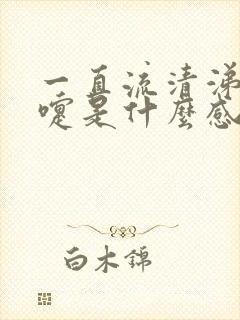 一直流清涕
嚏是什麼感
白木錦